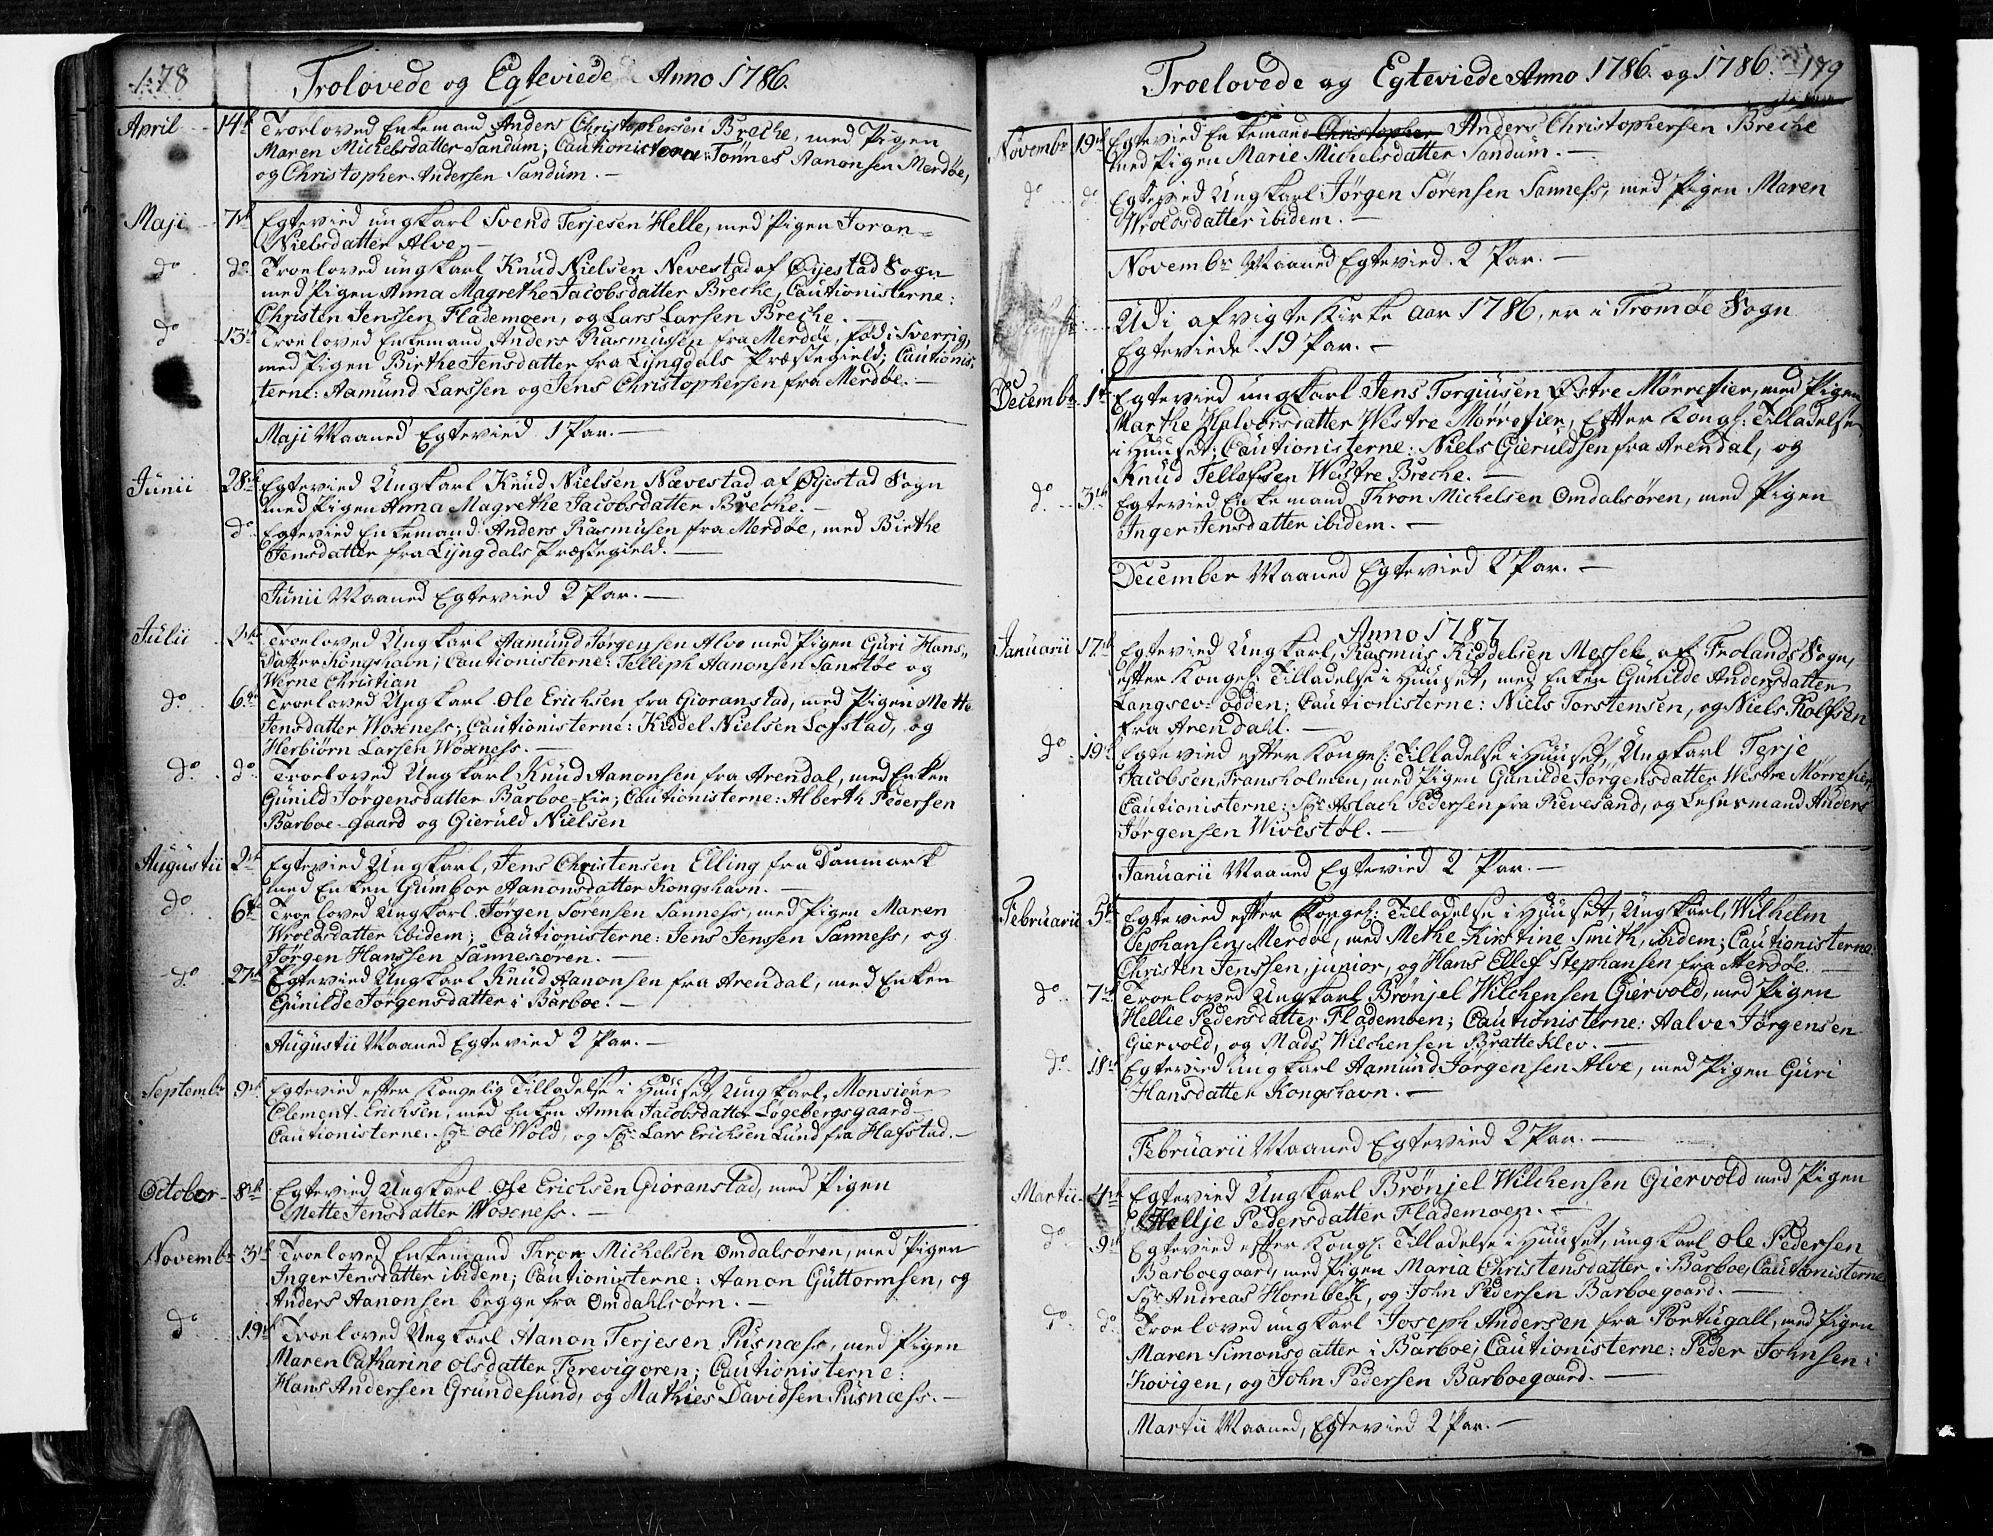 178
Trolovede og Egteviede Anno 1786.
April 14de Troeloved Enkemand Anders Christophersen Breche, med Pigen
Maren Michelsdatter Sandum; Cautionisterne: Tønnes Aanonsen Merdøe,
og Christopher Andersen Sandum. —
Maji 7de Egtevied ungkarl Svend Terjesen Helle, med Pigen Joran
Nielsdatter Alve. —
do do Troeloved ungkarl Knud Nielsen Nevestad af Øijestad Sogn
med Pigen Anna Magrethe Jacobsdatter Breche, Cautionisterne:
Christen Jenssen Flademoen, og Lars Larsen Breche. —
do 13de Troeloved Enkemand Anders Rasmusen fra Merdøe, fød i Sverrig,
med Pigen Birthe Jensdatter fra Lyngdals Præstegield; Cautionis-
terne: Aamund Larssen og Jens Christophersen fra Merdøe. —
Maji Maaned Egtevied 1 Par. —
Junii 28de Egtevied Ungkarl Knud Nielsen Nævestad af Øijestad Sogn
med Pigen Anna Magrethe Jacobsdatter Breche. —
do Egtevied Enkemand Anders Rasmusen fra Merdøe, med Birthe
Jensdatter fra Lyngdals Præstegield. —
Junii Maaned Egtevied 2 Par. —
Julii 2de Troeloved Ungkarl Aamund Jørgensen Alve med Pigen Guri Hans-
datter Kongshavn; Cautionisterne: Telleph Aanonsen Sandstøe og
Werne Christian
do 6te Troeloved Ungkarl Ole Erichsen fra Gioranstad, med Pigen Mette
Jensdatter Woxness; Cautionisterne: Kiddel Nielsen Lofstad, og
Herbiørn Larsen Woxness. —
do do Troeloved Ungkarl Knud Aanonsen fra Arendal, med Enken
Gunild Jørgensdatter Barboe-Eie; Cautionisterne: Alberth Pedersen
Barboe-gaard og Gieruld Nielsen
Augustii 2de Egtevied Ungkarl, Jens Christensen Elling fra Danmark
med Enken Gumbor Aanonsdatter Kongshavn. —
do 6te Troeloved Ungkarl Jørgen Sørensen Sanness, med Pigen Maren
Wroldsdatter ibidem; Cautionisterne: Jens Jenssen Sanness, og
Jørgen Hanssen Sannesøren. —
do 27de Egtevied Ungkarl Knud Aanonsen fra Arendal, med Enken
Gunilde Jørgensdatter i Barboe. —
Augustii Maaned Egtevied 2 Par. —
Septembr 9de Egtevied efter Kongelig Tilladelse i Huuset, Ungkarl, Monsieur
Clement Erichsen, med Enken Anna Jacobsdatter Løgebergsgaard
Cautionisterne: Sr Ole Wold, og Sr Lars Erichsen Lund fra Hafstad. —
October 8de Egtevied Ungkarl Ole Erichsen Gioranstad, med Pigen
Mette Jensdatter Woxness. —
Novembr 3de Troeloved Enkemand Thron Michelsen Omdalsøren, med Pigen
Inger Jensdatter ibidem; Cautionisterne: Aanon Guttormsen, og
Anders Aanonsen begge fra Omdahlsørn. —
do 19de Troeloved Ungkarl Aanon Terjesen Pusnæss, med Pigen
Maren Catharine Olsdatter Torevigoren; Cautionisterne:
Hans Andersen Grundesund, og Mathies Davidsen Pusnæss. —
Troelovede og Egteviede Anno 1786. og 1786. 179
Novembr 19de Egtevied Enkemand Christopher Anders Christophersen Breche
med Pigen Marie Michelsdatter Sandum. —
do do Egtevied Ungkarl Jørgen Sørensen Sanness, med Pigen Maren
Wroldsdatter ibidem. —
Novembr Maaned Egtevied 2 Par. —
Udi afvigte Kirke Aar 1786, er i Tromøe Sogn
Egteviede 19 Par. —
Decembr 1te Egtevied ungkarl Jens Torgiusen Østre Mørrefier, med Pigen
Marthe Halvorsdatter Westre Mørrefier, Efter Kongl: Tilladelse
i Huuset; Cautionisterne: Niels Gieruldsen fra Arendal, og
Knud Tellefsen Westre Breche. —
do 3de Egtevied Enkemand Thron Michelsen Omdalsøren, med Pigen
Inger Jensdatter ibidem. —
December Maaned Egtevied 2 Par. —
Anno 1787
Januarii 17de Egtevied Ungkarl, Rasmus Kiddelsen Messel af Frolands Sogn,
efter Kongel: Tilladelse i Huuset, med Enken Gunilde Andersdatter
Langsev-Odden; Cautionisterne: Niels Torstensen, og Niels Rolfsen
fra Arendall. —
do 19de Egtevied efter Kongel: Tilladelse i Huuset, Ungkarl Terje
Jacobsen, Fransholmen, med Pigen Gunilde Jørgensdatter Westre Mørrefier,
Cautionisterne: Sr Aslach Pedersen fra Revesand, og Lensmand Anders
Jørgensen Wivestøl. —
Januarii Maaned Egtevied 2 Par. —
Februarii 5te Egtevied efter Kongel: Tilladelse i Huuset, Ungkarl, Wilhelm
Stephansen Merdøe, med Methe Kirstine Smith, ibidem; Cautionisterne:
Christen Jenssen, junior, og Hans Ellef Stephansen fra Merdøe. —
do 7de Troeloved Ungkarl Brønjel Wilchensen Giervold, med Pigen
Hellie Pedersdatter Flademoen; Cautionisterne: Aalve Jørgensen
Giervold, og Mads Wilchensen Bratteklev. —
do 18de Egtevied Ungkarl Aamund Jørgensen Alve, med Pigen Guri
Hansdatter Kongshavn. —
Februarii Maaned Egtevied 2 Par. —
Martii 4de Egtevied Ungkarl Brønjel Wilchensen Giervold med Pigen
Hellje Pedersdatter Flademoen. —
do 9de Egtevied efter Kongl: Tilladelse i Huuset, ungkarl Ole Pedersen
Barboegaard, med Pigen Maria Christensdatter i Barboe, Cautionisterne
Sr Andreas Hornbek, og John Pedersen Barboegaard. —
do do Troeloved ungkarl Joseph Andersen fra Portugall, med Pigen
Maren Simonsdatter i Barboe; Cautionisterne: Peder Johnsen i
Kovigen, og John Pedersen Barboegaard. —
Martii Maaned, Egtevied 2 Par. —